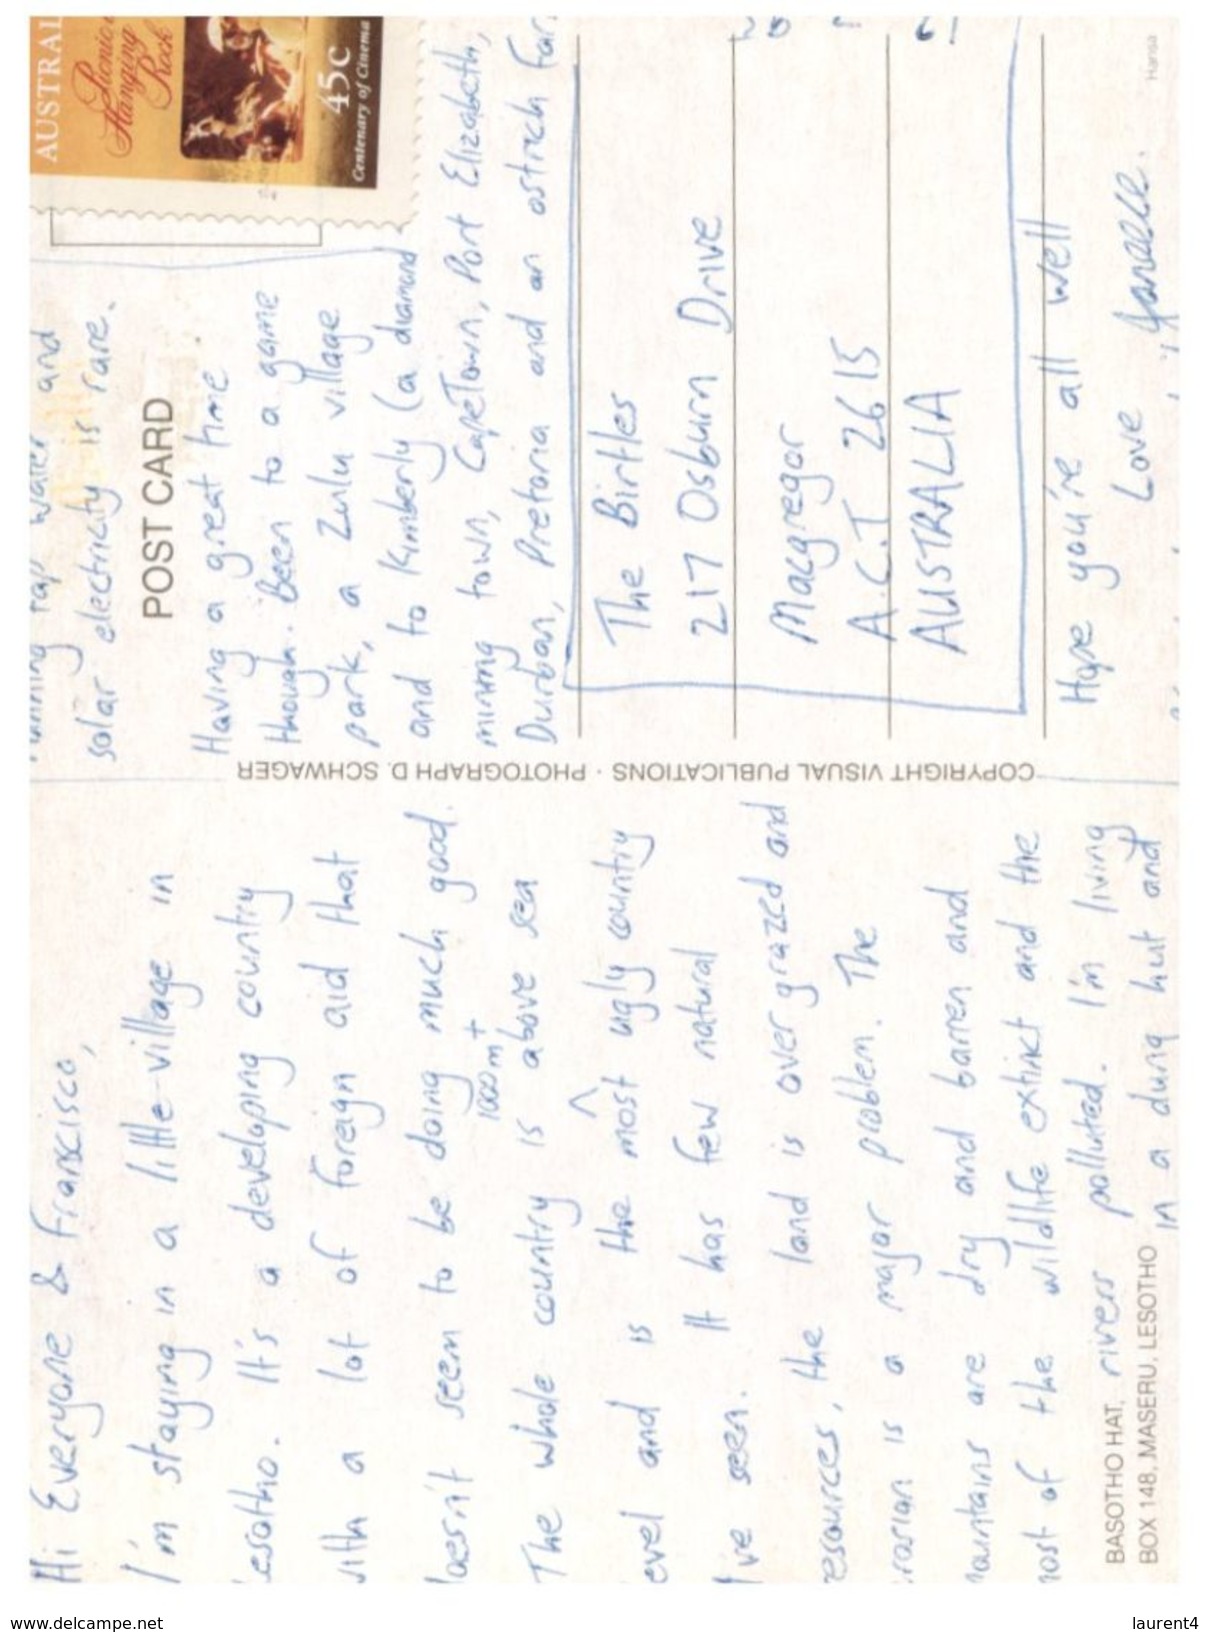 Hi Everyone & Franscisco,
I'm staying in a little village in
Lesotho. It's a developing country
with a lot of foreign aid that
doesn't seem to be doing much good.
The whole country is above sea
1000m+
level and is the most ^ ugly country
I've seen. It has few natural
resources, the land is over grazed and
erosion is a major problem. The
mountains are dry and barren and
most of the wildlife extinct and the
rivers polluted. I'm living
in a dung hut and
BASOTHO HAT,
BOX 148, MASERU, LESOTHO
COPYRIGHT VISUAL PUBLICATIONS · PHOTOGRAPH D. SCHWAGER
running tap water and
solar electricity is rare.
POST CARD
Having a great time
though. Been to a game
park, a Zulu village
and to Kimberly (a diamond
mining town, CapeTown, Port Elizabeth,
Durban, Pretoria and an ostrich far
The Birtles
217 Osburn Drive
Macgregor
A.C.T 2615
AUSTRALIA
Hope you're all well
Love Janelle.
Hansa
AUSTRAL
Picnic
Hanging
Rock
45c
Centenary of Cinema
www.delcampe.net
laurent4